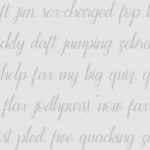 ft jim. sex-charged fop b
ckly daft jumping zebra
help fax my big quiz. q
flax jodhpurs! "now fax
ost pled, five quacking ze